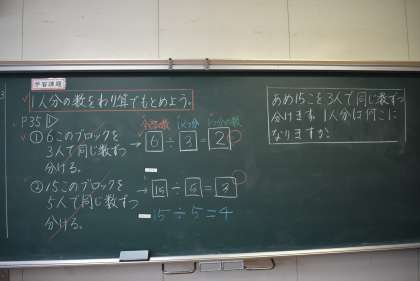 学習課題
1人分の数をわり算でもとめよう。
P35 ①
①6このブロックを
3人で同じ数ずつ
分ける。
全部の数 いくつ分 1つ分の数
→ 6÷3=2
②15このブロックを
5人で同じ数ずつ
分ける。
→ 15÷5=3
15÷5=4
あめ15こを3人で同じ数ずつ
分けます。1人分は何こに
なりますか。